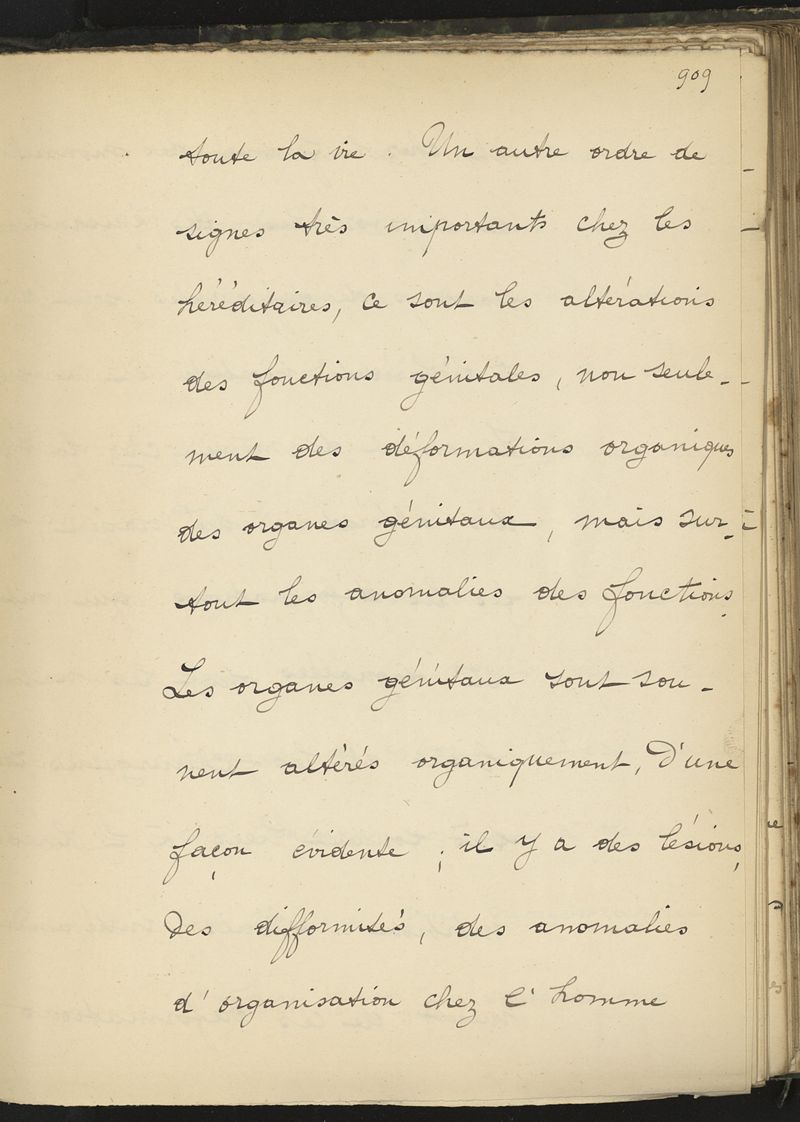 909
toute la vie. Un autre ordre de
signes très importants chez les
héréditaires, ce sont les altérations
des fonctions génitales, non seule-
ment des déformations organiques
des organes génitaux, mais sur-
tout les anomalies des fonctions.
Les organes génitaux sont sou-
vent altérés organiquement, d'une
façon évidente ; il y a des lésions,
des difformités, des anomalies
d'organisation chez l'homme